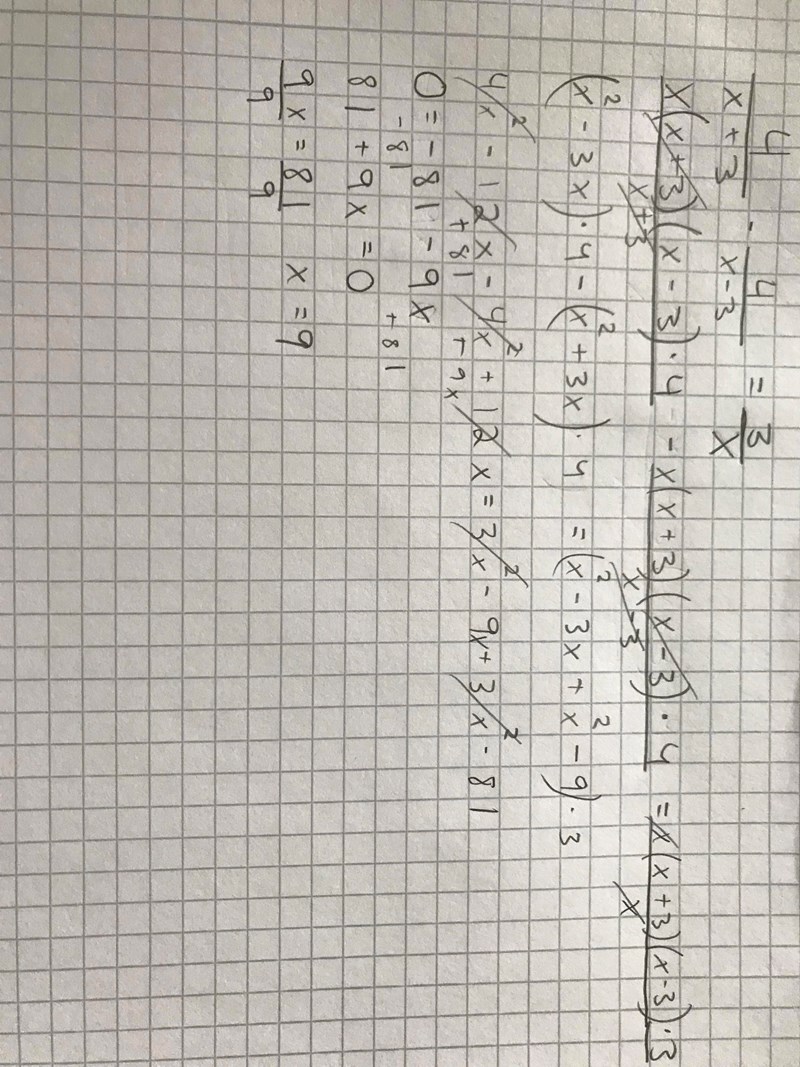 4/(x + 3) - 4/(x - 3) = 3/x
x(x + 3)(x - 3) · 4 / (x + 3) - x(x + 3)(x - 3) · 4 / (x - 3) = x(x + 3)(x - 3) · 3 / x
(x² - 3x) · 4 - (x² + 3x) · 4 = (x² - 3x + x² - 9) · 3
4x² - 12x - 4x² + 12x = 3x² - 9x + 3x² - 81
+ 81 + 9x
0 = - 81 - 9x
- 81 + 81
81 + 9x = 0
9x/9 = 81/9 x = 9